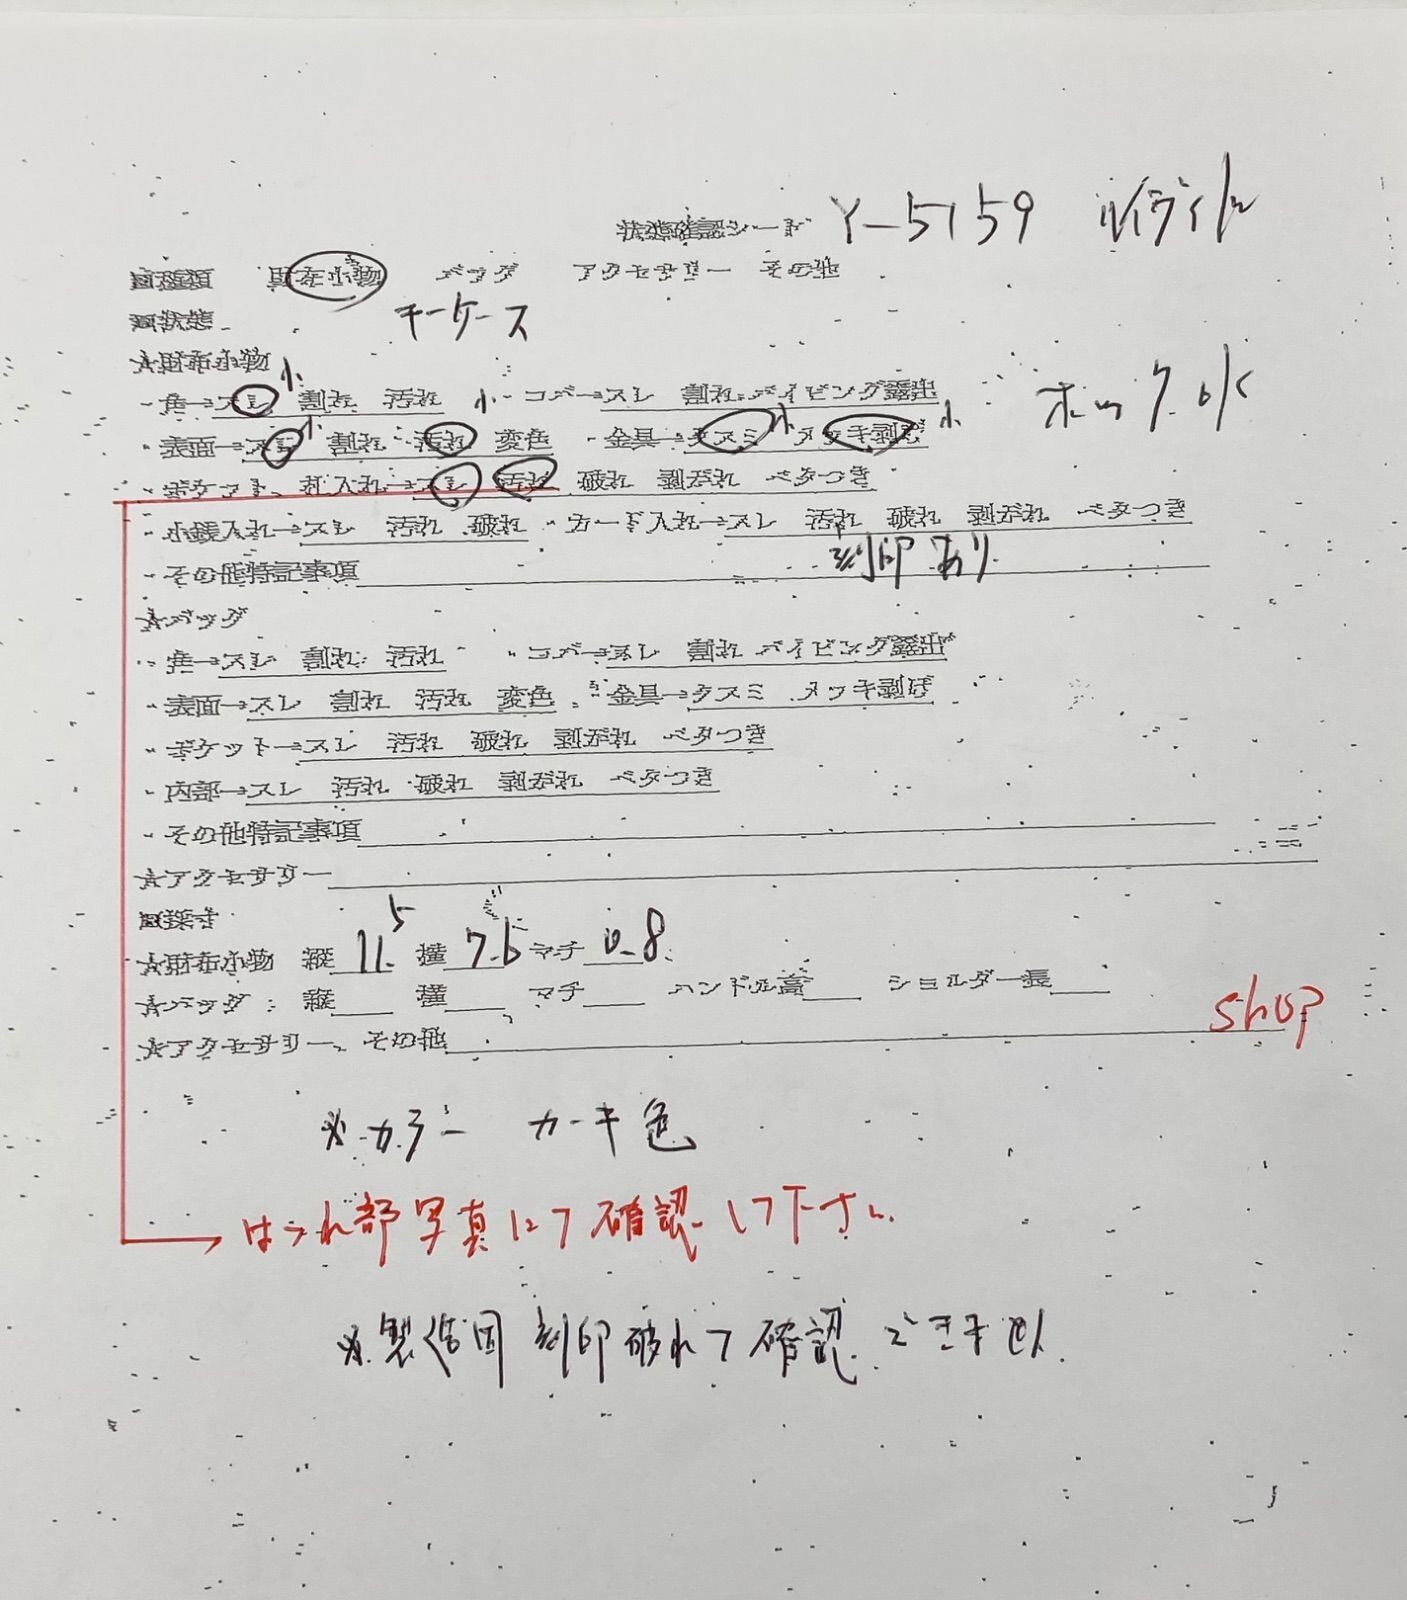 状態確認シート Y-5159 ルイヴィトン
■種類 財布小物 バッグ アクセサリー その他
■状態 キーケース
☆財布小物
・角→スレ 小 割れ 汚れ 小・コバ→スレ 割れ パイピング露出 小 ホックOK
・表面→スレ 小 割れ 汚れ 変色 ・金具→クスミ 小 メッキ剥げ 小
・ポケット、札入れ→スレ 汚れ 破れ 剥がれ ベタつき
・小銭入れ→スレ 汚れ 破れ ・カード入れ→スレ 汚れ 破れ 剥がれ ベタつき
・その他特記事項 刻印あり
☆バッグ
・角→スレ 割れ 汚れ ・コバ→スレ 割れ パイピング露出
・表面→スレ 割れ 汚れ 変色 ・金具→クスミ メッキ剥げ
・ポケット→スレ 汚れ 破れ 剥がれ ベタつき
・内部→スレ 汚れ 破れ 剥がれ ベタつき
・その他特記事項
☆アクセサリー
■採寸
☆財布小物 縦 11.5 横 7.6 マチ 0.8
☆バッグ 縦 横 マチ ハンドル高 ショルダー長
☆アクセサリー、その他 shop
※カラー カーキ色
→ はがれ部写真にて確認して下さい
※製造国刻印破れて確認できません